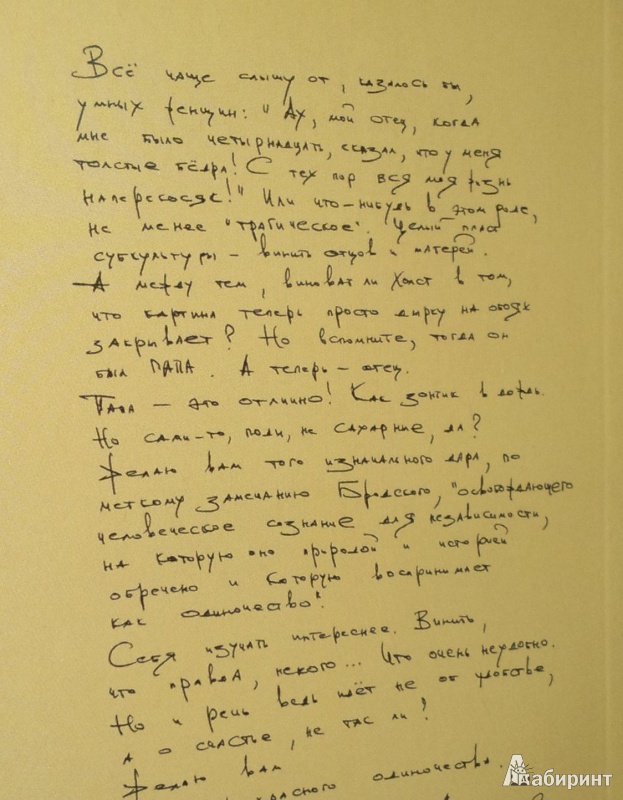 Всё чаще слышу от, казалось бы,
умных женщин: "Ах, мой отец, когда
мне было четырнадцать, сказал, что у меня
толстые бёдра! С тех пор вся моя жизнь
наперекосяк!" Или что-нибудь в этом роде,
не менее "трагическое". Целый пласт
субкультуры – винить отцов и матерей.
А между тем, виноват ли холст в том,
что картина теперь просто дырку на обоях
закрывает? Но вспомните, тогда он
был ПАПА. А теперь – отец.
Папа – это отлично! Как зонтик в дождь.
Но сами-то, поди, не сахарные, да?
Желаю вам того изначального дара, по
меткому замечанию Бродского, "освобождающего
человеческое сознание для независимости,
на которую оно природой и историей
обречено и которую воспринимает
как одиночество".
Себя изучать интереснее. Винить,
что правда, некого... Что очень неудобно.
Но и речь ведь идёт не об удобстве,
а о счастье, не так ли?
Желаю вам
одиночества.
Лабиринт